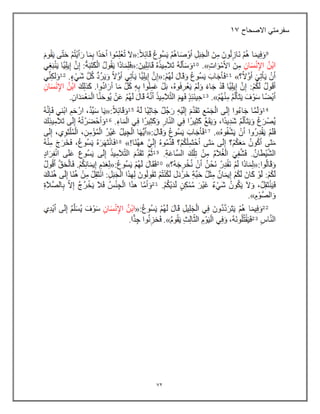 سفر متي الاصحاح ١٧
9وَفِيمَا هُمْ نَازِلُونَ مِنَ الْجَبَلِ أَوْصَاهُمْ يَسُوعُ قَائِلاً:«لاَ تُعْلِمُوا أَحَدًا بِمَا رَأَيْتُمْ حَتَّى يَقُومَ
ابْنُ الإِنْسَانِ مِنَ الأَمْوَاتِ». 10وَسَأَلَهُ تَلاَمِيذُهُ قَائِلِينَ:«فَلِمَاذَا يَقُولُ الْكَتَبَةُ: إِنَّ إِيلِيَّا يَنْبَغِي
أَنْ يَأْتِيَ أَوَّلاً؟» 11فَأَجَابَ يَسُوعُ وَقَالَ لَهُمْ:«إِنَّ إِيلِيَّا يَأْتِي أَوَّلاً وَيَرُدُّ كُلَّ شَيْءٍ. 12وَلكِنِّي
أَقُولُ لَكُمْ: إِنَّ إِيلِيَّا قَدْ جَاءَ وَلَمْ يَعْرِفُوهُ، بَلْ عَمِلُوا بِهِ كُلَّ مَا أَرَادُوا. كَذلِكَ ابْنُ الإِنْسَانِ
أَيْضًا سَوْفَ يَتَأَلَّمُ مِنْهُمْ». 13حِينَئِذٍ فَهِمَ التَّلاَمِيذُ أَنَّهُ قَالَ لَهُمْ عَنْ يُوحَنَّا الْمَعْمَدَانِ.
14وَلَمَّا جَاءُوا إِلَى الْجَمْعِ تَقَدَّمَ إِلَيْهِ رَجُلٌ جَاثِيًا لَهُ 15وَقَائِلاً:«يَا سَيِّدُ، ارْحَمِ ابْني فَإِنَّهُ
يُصْرَعُ وَيَتَأَلَّمُ شَدِيدًا، وَيَقَعُ كَثِيرًا فِي النَّارِ وَكَثِيرًا فِي الْمَاءِ. 16وَأَحْضَرْتُهُ إِلَى تَلاَمِيذِكَ
فَلَمْ يَقْدِرُوا أَنْ يَشْفُوهُ». 17فَأَجَابَ يَسُوعُ وَقَالَ:«أَيُّهَا الْجِيلُ غَيْرُ الْمُؤْمِنِ، الْمُلْتَوِي، إِلَى
مَتَى أَكُونُ مَعَكُمْ؟ إِلَى مَتَى أَحْتَمِلُكُمْ؟ قَدِّمُوهُ إِلَيَّ ههُنَا!» 18فَانْتَهَرَهُ يَسُوعُ، فَخَرَجَ مِنْهُ
الشَّيْطَانُ. فَشُفِيَ الْغُلاَمُ مِنْ تِلْكَ السَّاعَةِ. 19ثُمَّ تَقَدَّمَ التَّلاَمِيذُ إِلَى يَسُوعَ عَلَى انْفِرَادٍ
وَقَالُوا:«لِمَاذَا لَمْ نَقْدِرْ نَحْنُ أَنْ نُخْرِجَهُ؟» 20فَقَالَ لَهُمْ يَسُوعُ:«لِعَدَمِ إِيمَانِكُمْ. فَالْحَقَّ أَقُولُ
لَكُمْ: لَوْ كَانَ لَكُمْ إِيمَانٌ مِثْلُ حَبَّةِ خَرْدَل لَكُنْتُمْ تَقُولُونَ لِهذَا الْجَبَلِ: انْتَقِلْ مِنْ هُنَا إِلَى هُنَاكَ
فَيَنْتَقِلُ، وَلاَ يَكُونُ شَيْءٌ غَيْرَ مُمْكِنٍ لَدَيْكُمْ. 21وَأَمَّا هذَا الْجِنْسُ فَلاَ يَخْرُجُ إِلاَّ بِالصَّلاَةِ
وَالصَّوْمِ».
22وَفِيمَا هُمْ يَتَرَدَّدُونَ فِي الْجَلِيلِ قَالَ لَهُمْ يَسُوعُ:«ابْنُ الإِنْسَانِ سَوْفَ يُسَلَّمُ إِلَى أَيْدِي
النَّاسِ 23فَيَقْتُلُونَهُ، وَفِي الْيَوْمِ الثَّالِثِ يَقُومُ». فَحَزِنُوا جِدًّا.
٧٢